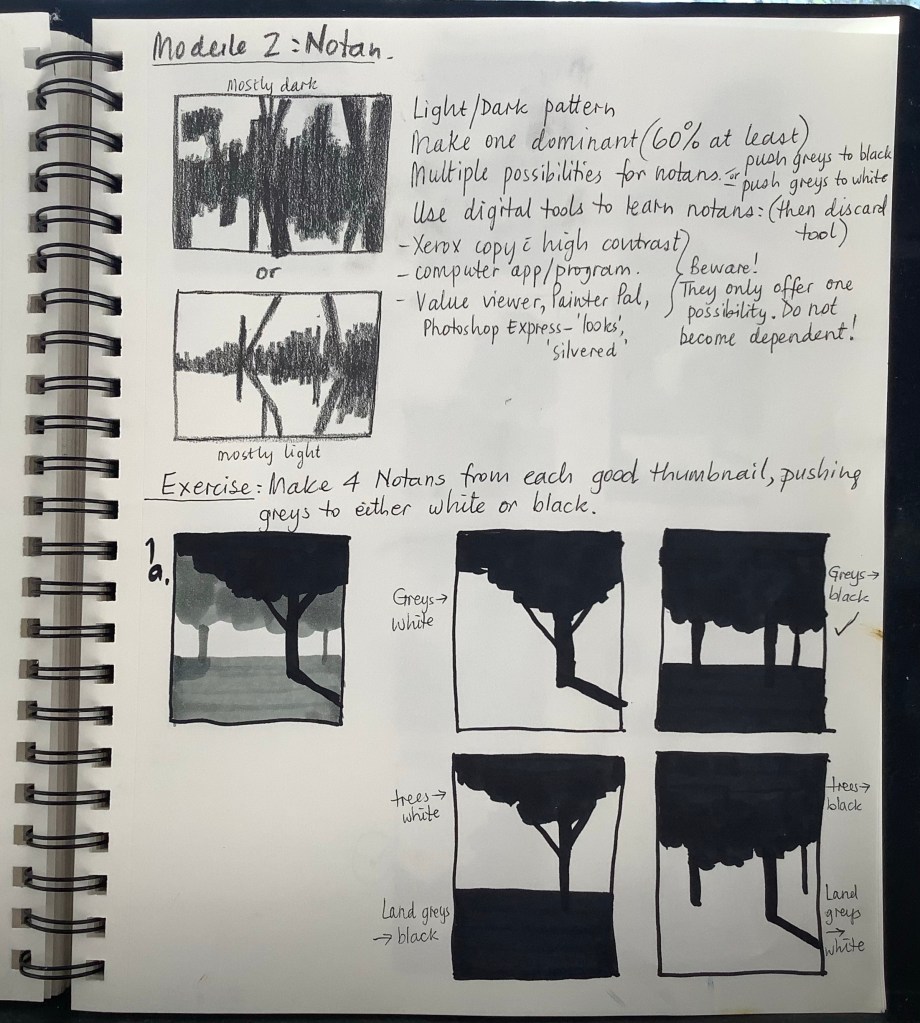 Module 2: Notan.
Mostly dark
or
mostly light
Light/Dark pattern
Make one dominant (60% at least)
Multiple possibilities for notans. or push greys to black
= push greys to white
Use digital tools to learn notans: (then discard
tool)
- Xerox copy c̄ high contrast
- computer app/program.
- Value viewer, Painter Pal,
Photoshop Express – 'looks',
'silvered'
Beware!
They only offer one
possibility. Do not
become dependent!
Exercise: Make 4 Notans from each good thumbnail, pushing
greys to either white or black.
1
a.
Greys →
white
Greys →
black
✓
trees →
white
Land greys
→ black
trees →
black
Land
greys
→
white